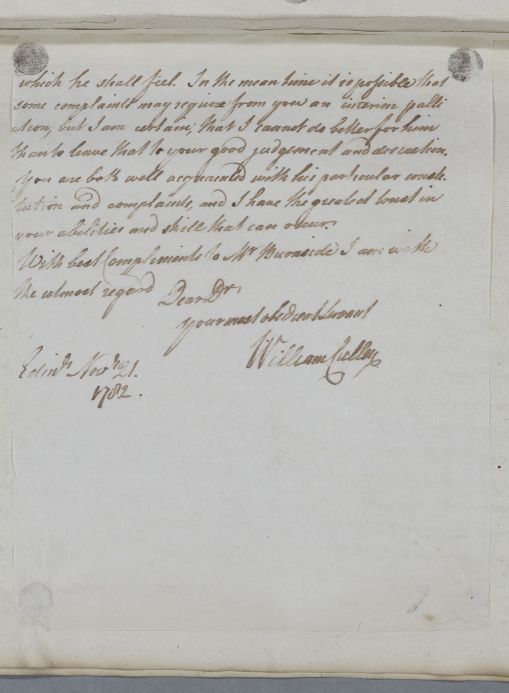 which he shall feel. In the mean time it is possible that
some complaints may require from you an interim palli
ation, but I am certain, that I cannot do better for him
than to leave that to your good judgement and discretion.
You are both well acquainted with his particular consti
tution and complaints, and I have the greatest trust in
your abilities and skill that can occur.
With best Compliments to Mr Burnside I am with
the utmost regard Dear Dr,
your most obedient servant
William Cullen
Edinr. Novr. 21.
1782.